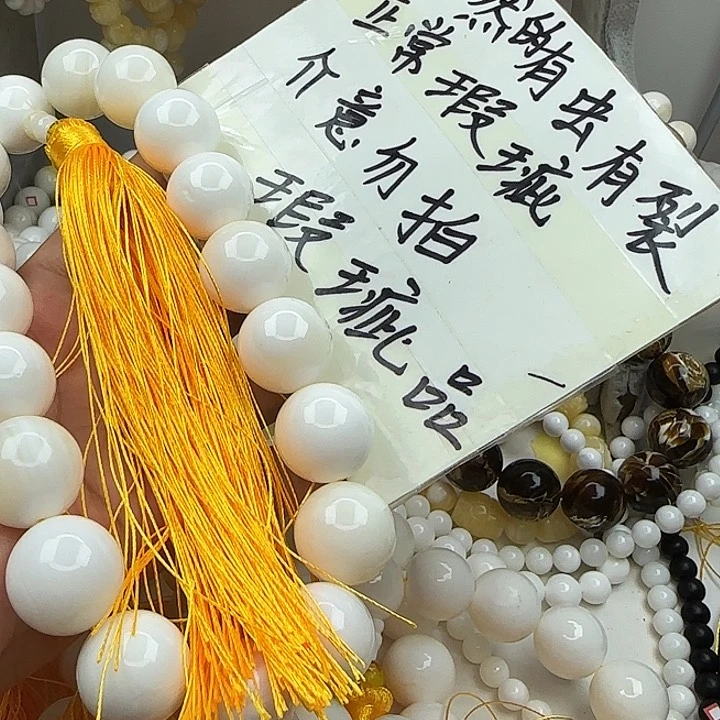 然的有虫有裂
正常瑕疵
介意勿拍
瑕疵品